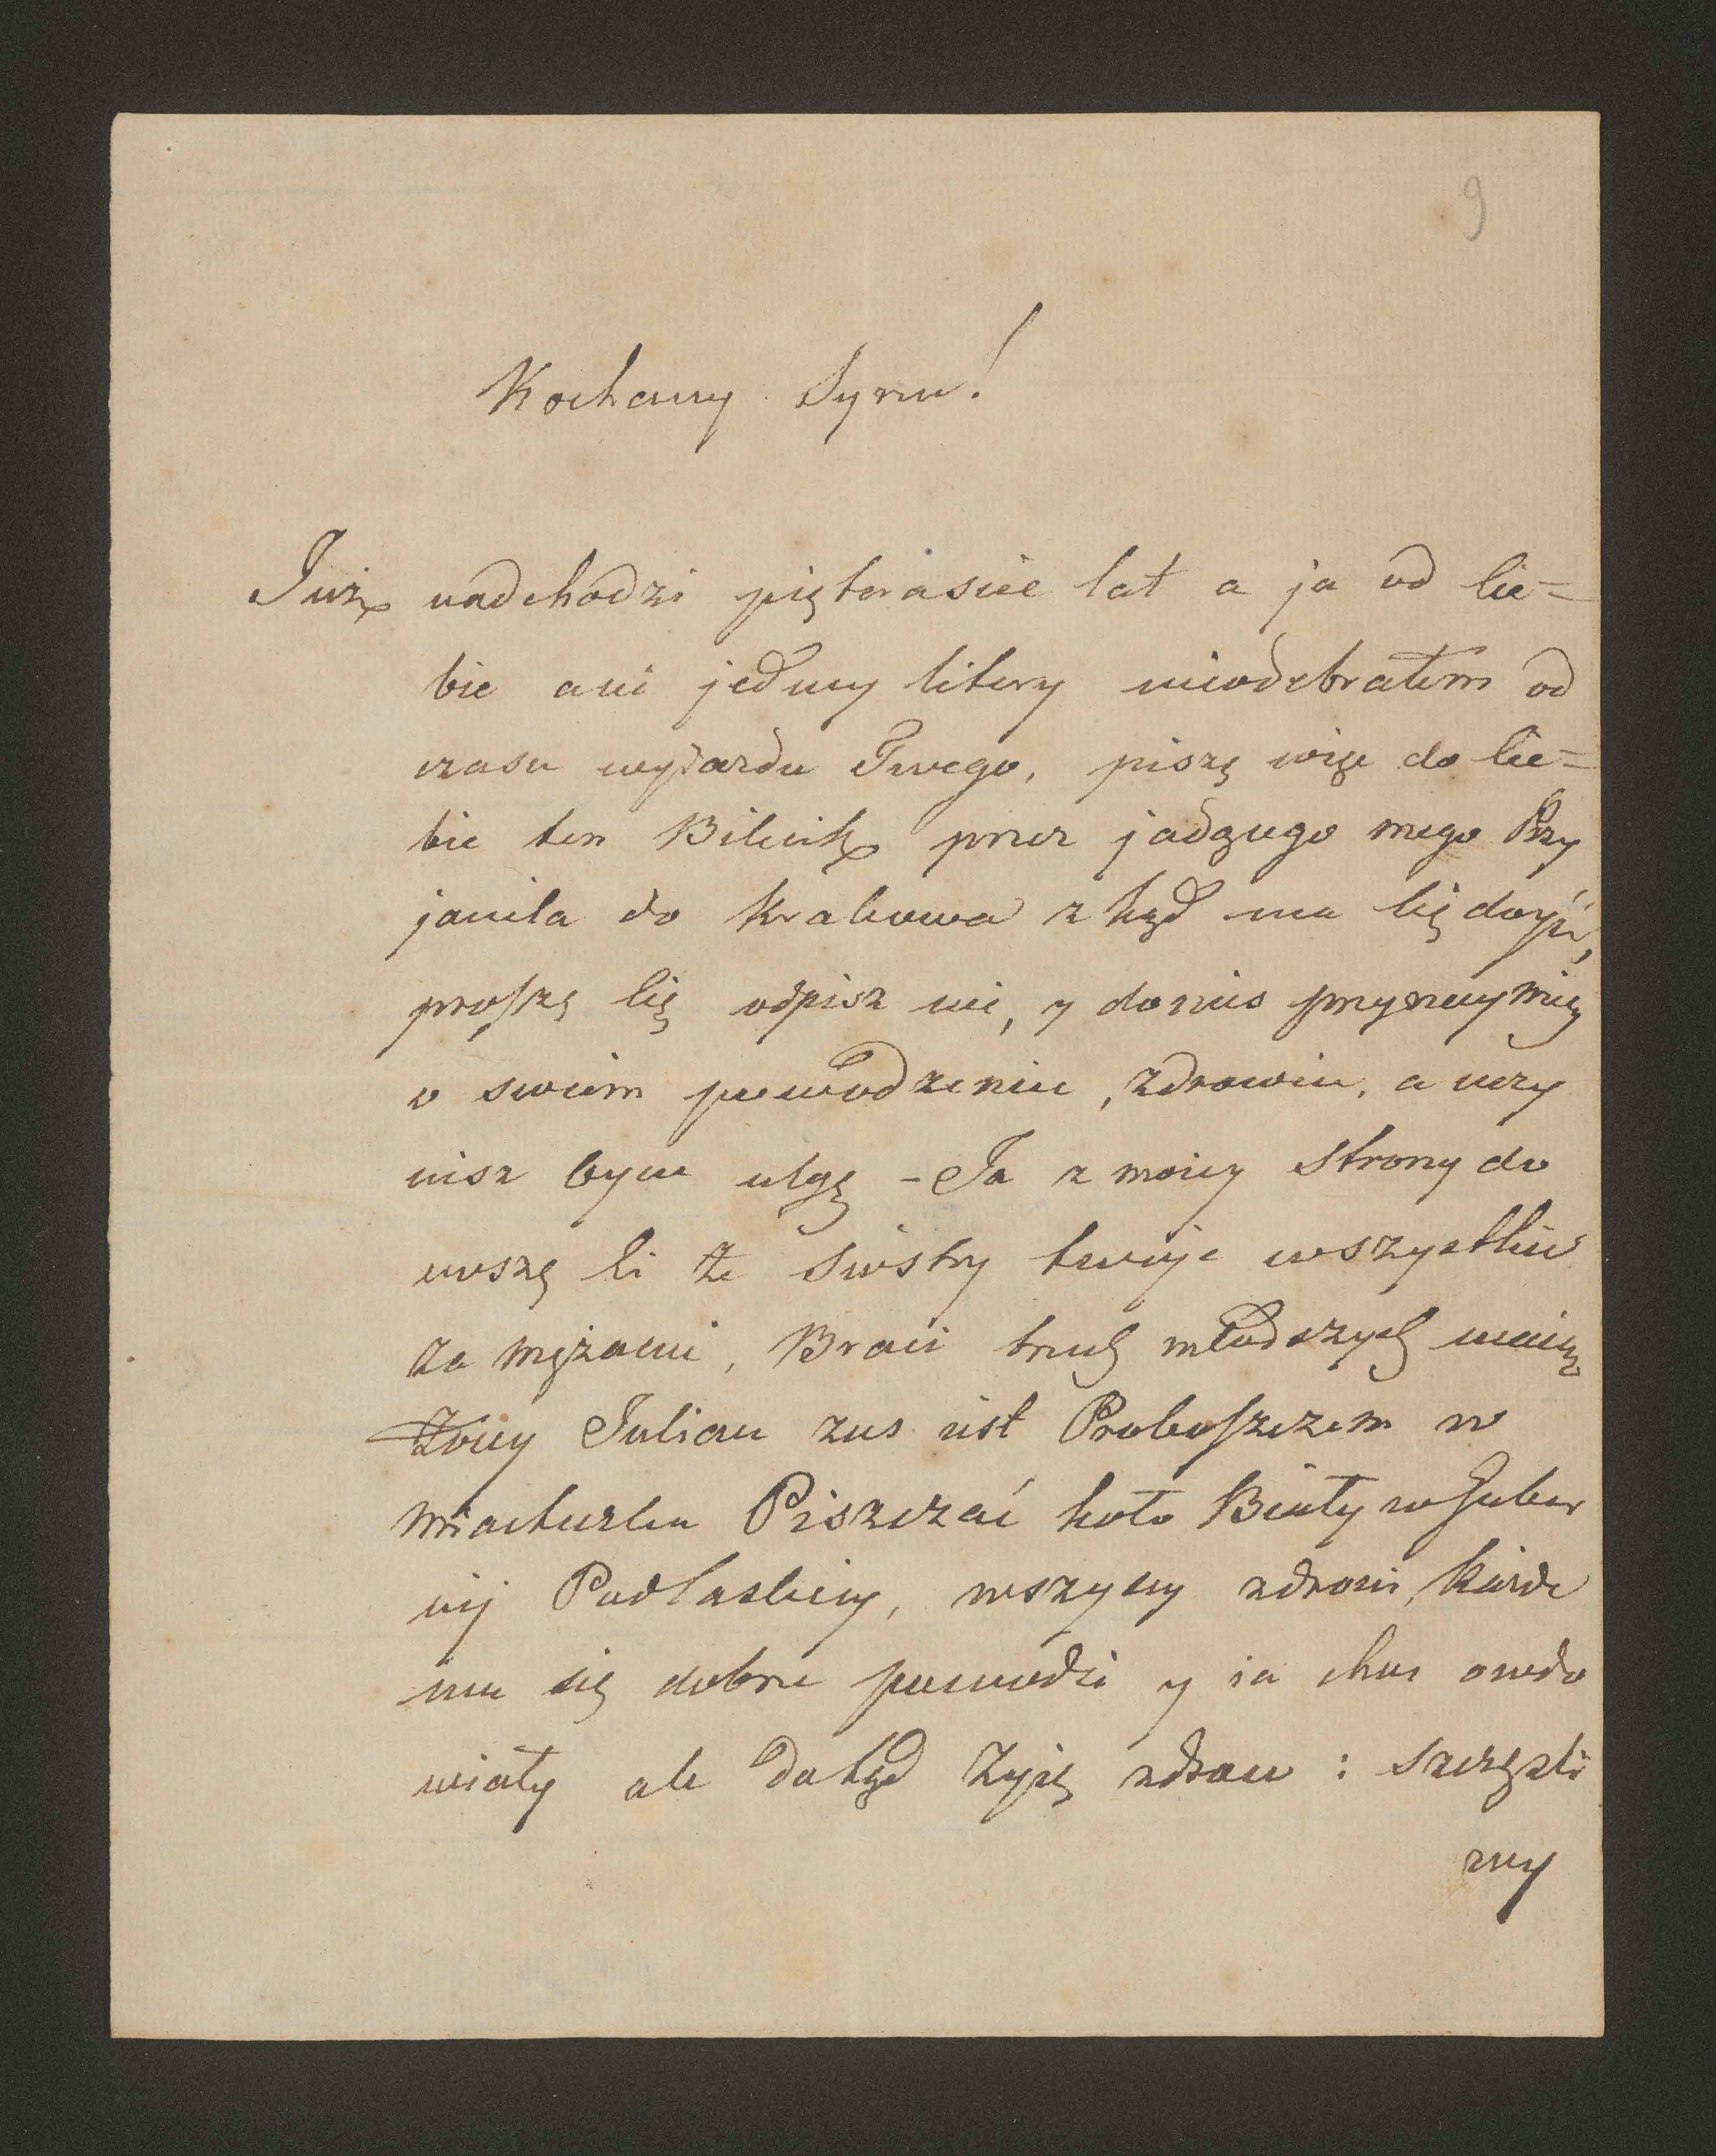 9
Kochany Synu!
Już nadchodzi piętnaście lat a ja od Cie=
bie ani jedney litery nieodebrałem od
czasu wyjazdu Twego, piszę więc do Cie=
bie ten Bilecik przez jadącego mego Przy
jaciela do Krakowa z kąd ma Cię dojść,
proszę Cię odpisz mi, y donieś przynaymniey
o swoim powodzeniu, zdrowiu, a uczy
nisz Oycu ulgę - Ja z moiey strony do
noszę Ci że Siostry twoje wszystkie
za mężami, Braci trzech młodszych maią
Żony Julian zaś iest Proboszczem w
Miasteczku Piszczać koło Biały w Guber
nij Podlaskiey, wszyscy zdrowi, każde
mu się dobrze powodzi y ia choć owdo
wiały ale dotąd żyię zdrów i szczęśli
wy